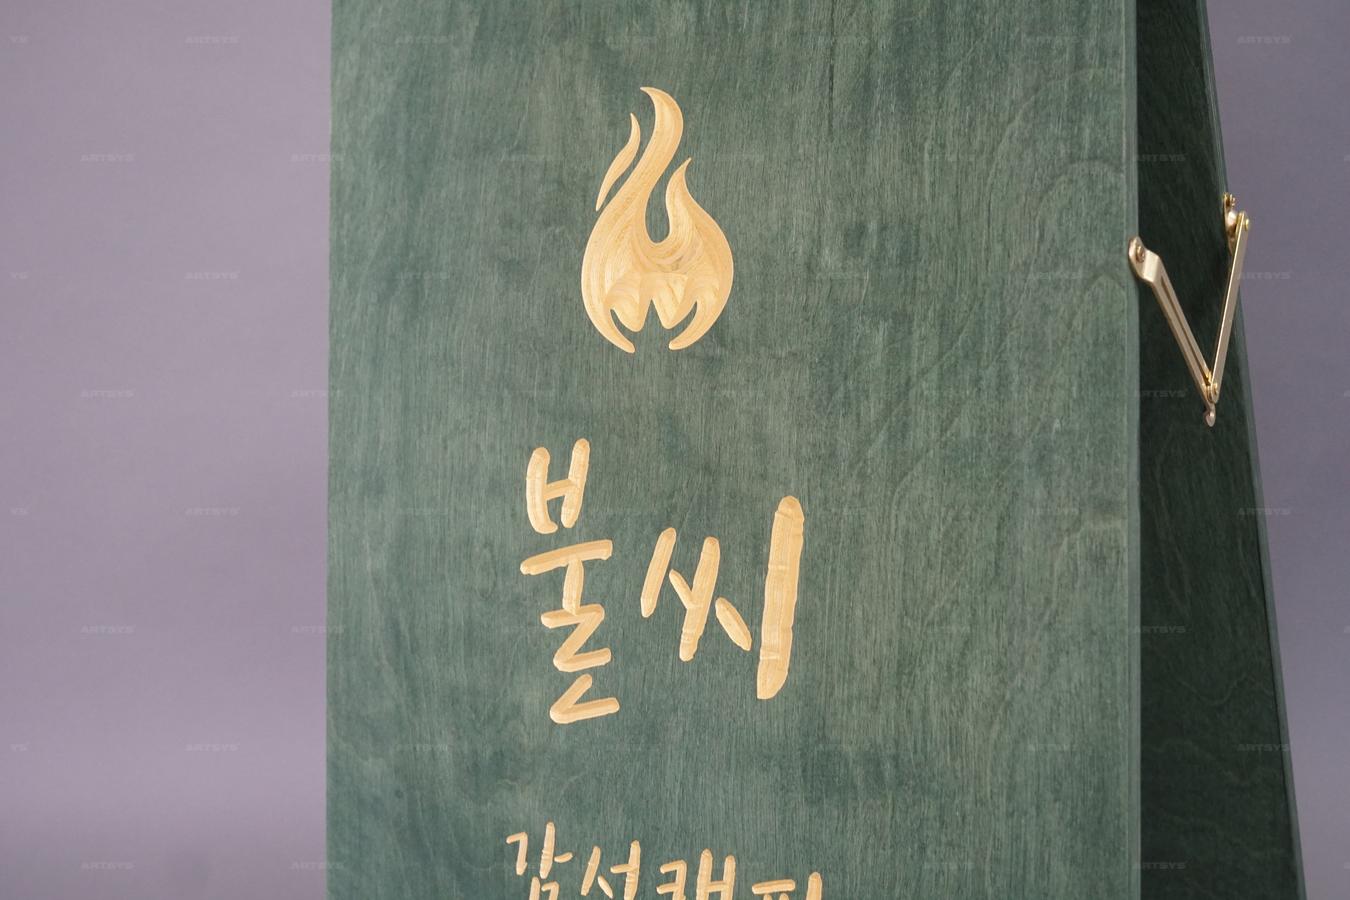 불씨
감성캠핑
ARTSYS